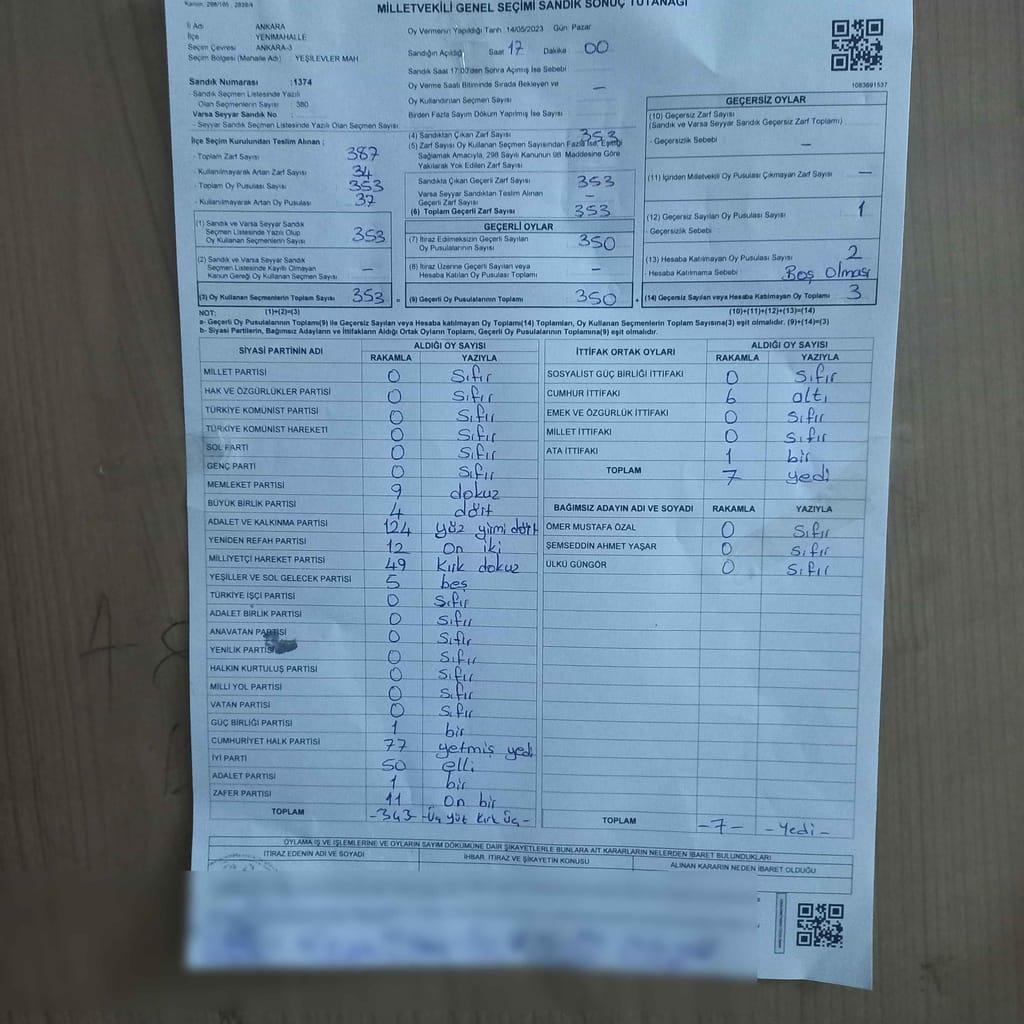 Kanun: 298/105 , 2839/4
MİLLETVEKİLİ GENEL SEÇİMİ SANDIK SONUÇ TUTANAĞI
İl Adı ANKARA
İlçe YENİMAHALLE
Seçim Çevresi ANKARA-3
Seçim Bölgesi (Mahalle Adı) YEŞİLEVLER MAH.
Sandık Numarası :1374
Sandık Seçmen Listesinde Yazılı
Olan Seçmenlerin Sayısı : 380
Varsa Seyyar Sandık No :
- Seyyar Sandık Seçmen Listesinde Yazılı Olan Seçmen Sayısı
İlçe Seçim Kurulundan Teslim Alınan ;
- Toplam Zarf Sayısı 387
- Kullanılmayarak Artan Zarf Sayısı 34
- Toplam Oy Pusulası Sayısı 353
- Kullanılmayarak Artan Oy Pusulası 37
(1) Sandık ve Varsa Seyyar Sandık
Seçmen Listesinde Yazılı Olup
Oy Kullanan Seçmenlerin Sayısı 353
(2) Sandık ve Varsa Seyyar Sandık
Seçmen Listesinde Kayıtlı Olmayan
Kanun Gereği Oy Kullanan Seçmen Sayısı –
(3) Oy Kullanan Seçmenlerin Toplam Sayısı 353
Oy Vermenin Yapıldığı Tarih 14/05/2023 Gün: Pazar
Sandığın Açıldığı Saat 17 Dakika 00
Sandık Saat 17:00'den Sonra Açılmış İse Sebebi
Oy Verme Saati Bitiminde Sırada Bekleyen ve
Oy Kullandırılan Seçmen Sayısı –
Birden Fazla Sayım Döküm Yapılmış İse Sayısı
(4) Sandıktan Çıkan Zarf Sayısı 353
(5) Zarf Sayısı Oy Kullanan Seçmen Sayısından Fazla İse, Eşitliği
Sağlamak Amacıyla, 298 Sayılı Kanunun 98. Maddesine Göre
Yakılarak Yok Edilen Zarf Sayısı
Sandıkta Çıkan Geçerli Zarf Sayısı 353
Varsa Seyyar Sandıktan Teslim Alınan
Geçerli Zarf Sayısı –
(6) Toplam Geçerli Zarf Sayısı 353
GEÇERLİ OYLAR
(7) İtiraz Edilmeksizin Geçerli Sayılan
Oy Pusulalarının Sayısı 350
(8) İtiraz Üzerine Geçerli Sayılan veya
Hesaba Katılan Oy Pusulası Toplamı –
= (9) Geçerli Oy Pusulalarının Toplamı 350
1083691537
GEÇERSİZ OYLAR
(10) Geçersiz Zarf Sayısı
(Sandık ve Varsa Seyyar Sandık Geçersiz Zarf Toplamı)
- Geçersizlik Sebebi –
(11) İçinden Milletvekili Oy Pusulası Çıkmayan Zarf Sayısı –
(12) Geçersiz Sayılan Oy Pusulası Sayısı 1
- Geçersizlik Sebebi
(13) Hesaba Katılmayan Oy Pusulası Sayısı 2
- Hesaba Katılmama Sebebi Boş Olması
+ (14) Geçersiz Sayılan veya Hesaba Katılmayan Oy Toplamı 3
NOT: (1)+(2)=(3) (10)+(11)+(12)+(13)=(14)
a- Geçerli Oy Pusulalarının Toplamı(9) ile Geçersiz Sayılan veya Hesaba katılmayan Oy Toplamı(14) Toplamları, Oy Kullanan Seçmenlerin Toplam Sayısına(3) eşit olmalıdır. (9)+(14)=(3)
b- Siyasi Partilerin, Bağımsız Adayların ve İttifakların Aldığı Ortak Oyların Toplamı, Geçerli Oy Pusulalarının Toplamına(9) eşit olmalıdır.
SİYASİ PARTİNİN ADI ALDIĞI OY SAYISI
RAKAMLA YAZIYLA
MİLLET PARTİSİ 0 Sıfır
HAK VE ÖZGÜRLÜKLER PARTİSİ 0 Sıfır
TÜRKİYE KOMÜNİST PARTİSİ 0 Sıfır
TÜRKİYE KOMÜNİST HAREKETİ 0 Sıfır
SOL PARTİ 0 Sıfır
GENÇ PARTİ 0 Sıfır
MEMLEKET PARTİSİ 9 dokuz
BÜYÜK BİRLİK PARTİSİ 4 dört
ADALET VE KALKINMA PARTİSİ 124 yüz yirmi dört
YENİDEN REFAH PARTİSİ 12 On iki
MİLLİYETÇİ HAREKET PARTİSİ 49 Kırk dokuz
YEŞİLLER VE SOL GELECEK PARTİSİ 5 beş
TÜRKİYE İŞÇİ PARTİSİ 0 Sıfır
ADALET BİRLİK PARTİSİ 0 Sıfır
ANAVATAN PARTİSİ 0 Sıfır
YENİLİK PARTİSİ 0 Sıfır
HALKIN KURTULUŞ PARTİSİ 0 Sıfır
MİLLİ YOL PARTİSİ 0 Sıfır
VATAN PARTİSİ 0 Sıfır
GÜÇ BİRLİĞİ PARTİSİ 1 bir
CUMHURİYET HALK PARTİSİ 77 yetmiş yedi
İYİ PARTİ 50 elli
ADALET PARTİSİ 1 bir
ZAFER PARTİSİ 11 On bir
TOPLAM -343- -Üç yüz kırk üç-
İTTİFAK ORTAK OYLARI ALDIĞI OY SAYISI
RAKAMLA YAZIYLA
SOSYALİST GÜÇ BİRLİĞİ İTTİFAKI 0 Sıfır
CUMHUR İTTİFAKI 6 altı
EMEK VE ÖZGÜRLÜK İTTİFAKI 0 Sıfır
MİLLET İTTİFAKI 0 Sıfır
ATA İTTİFAKI 1 bir
TOPLAM 7 yedi
BAĞIMSIZ ADAYIN ADI VE SOYADI RAKAMLA YAZIYLA
ÖMER MUSTAFA ÖZAL 0 Sıfır
ŞEMSEDDİN AHMET YAŞAR 0 Sıfır
ÜLKÜ GÜNGÖR 0 Sıfır
TOPLAM -7- -Yedi-
OYLAMA İŞ VE İŞLEMLERİNE VE OYLARIN SAYIM DÖKÜMÜNE DAİR ŞİKAYETLERLE BUNLARA AİT KARARLARIN NELERDEN İBARET BULUNDUKLARI
İTİRAZ EDENİN ADI VE SOYADI İHBAR, İTİRAZ VE ŞİKAYETİN KONUSU ALINAN KARARIN NEDEN İBARET OLDUĞU